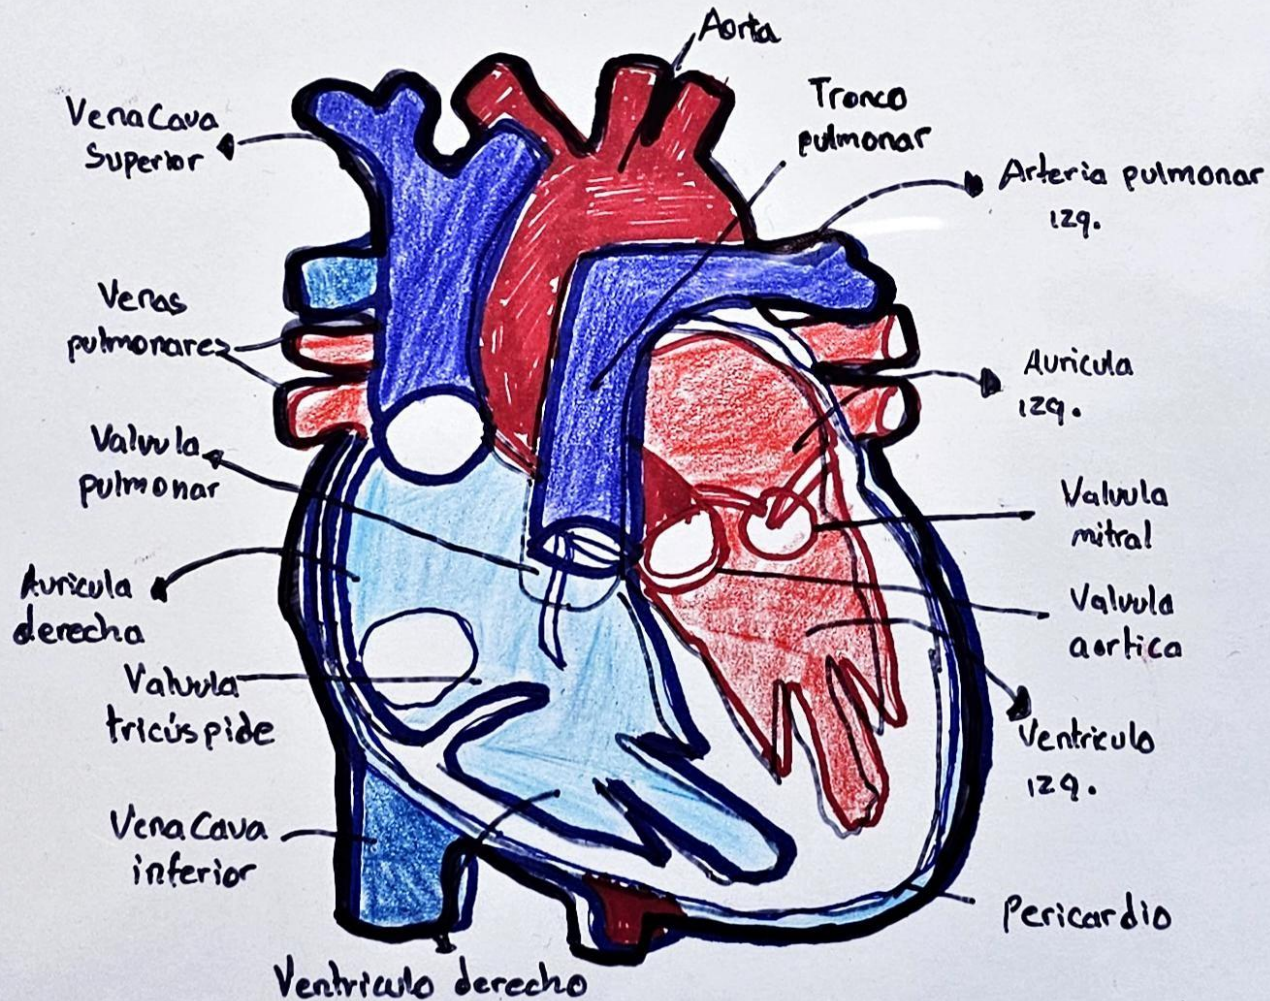 Aorta
Tronco
pulmonar
Vena Cava
Superior
Arteria pulmonar
izq.
Venas
pulmonares
Auricula
izq.
Valvula
pulmonar
Valvula
mitral
Auricula
derecha
Valvula
aortica
Valvula
tricúspide
Ventriculo
izq.
Vena Cava
inferior
Pericardio
Ventriculo derecho